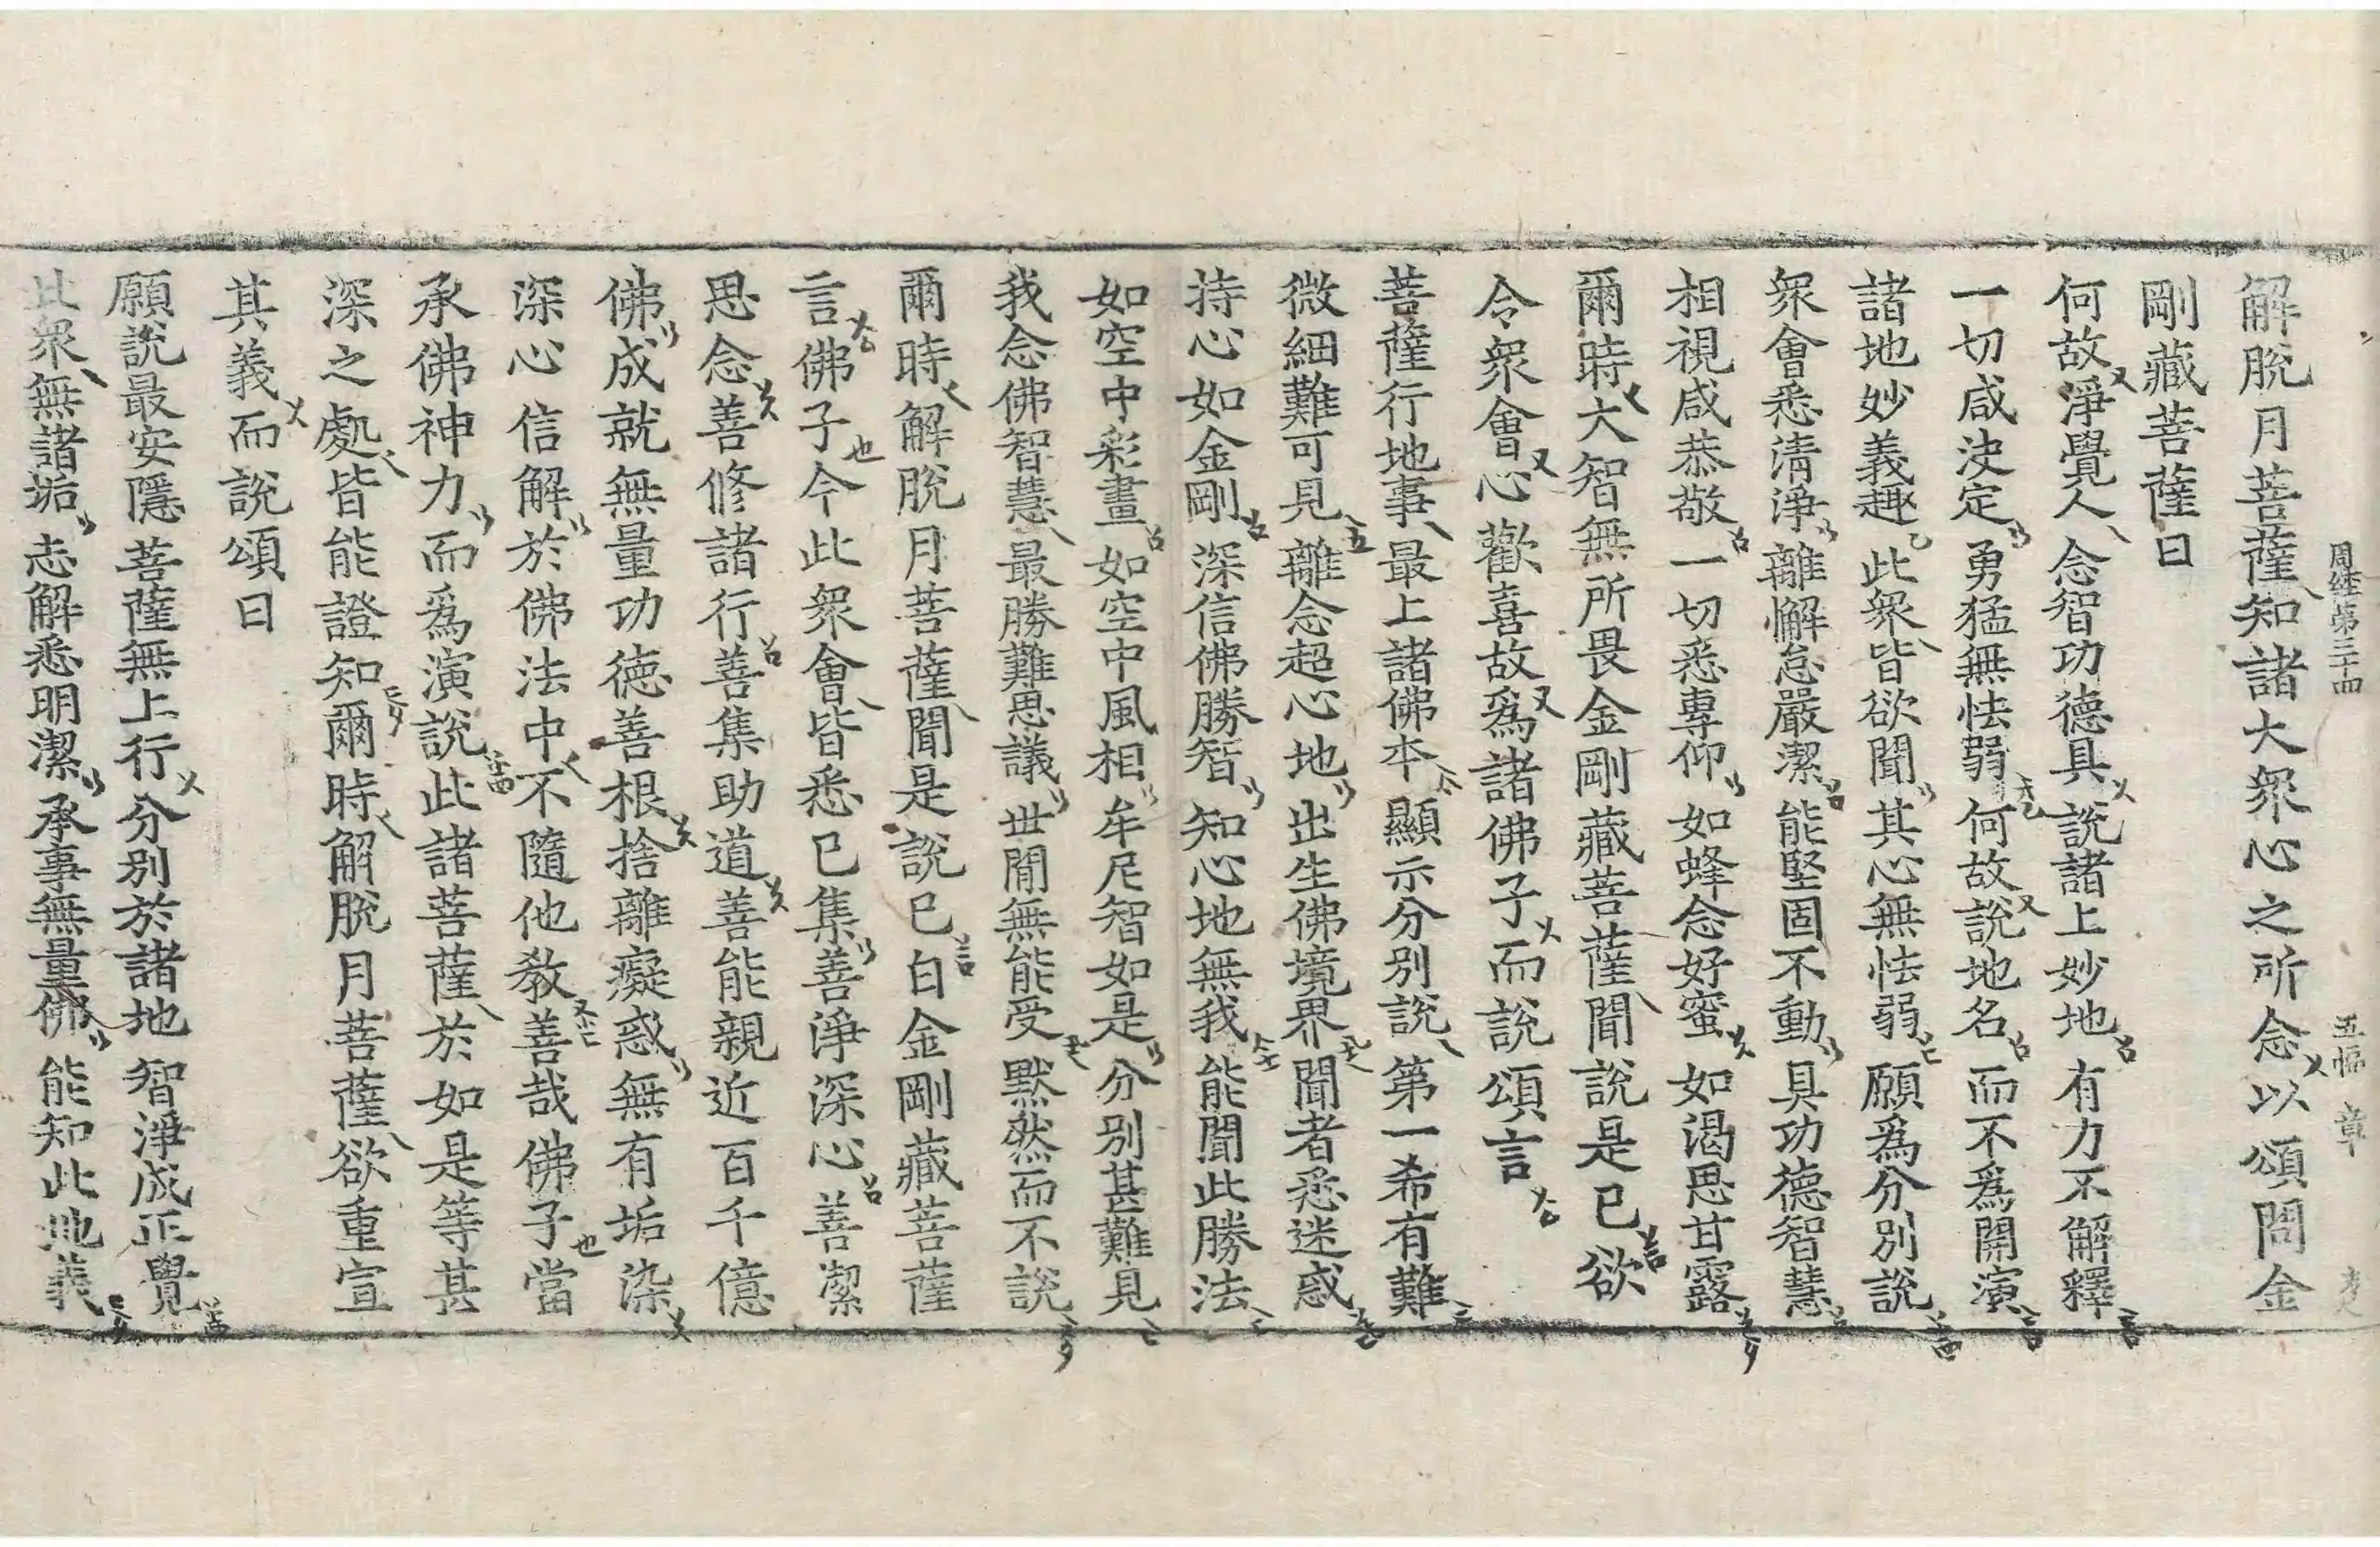 周経第三十四 五幅 章
解脫月菩薩知諸大眾心之所念以頌問金
剛藏菩薩曰
何故淨覺人 念智功德具 說諸上妙地 有力不解釋
一切咸決定 勇猛無怯弱 何故說地名 而不爲開演
諸地妙義趣 此眾皆欲聞 其心無怯弱 願爲分別說
眾會悉清淨 離懈怠嚴潔 能堅固不動 具功德智慧
相視咸恭敬 一切悉專仰 如蜂念好蜜 如渴思甘露
爾時大智無所畏金剛藏菩薩聞說是已欲
令眾會心歡喜故爲諸佛子而說頌言
菩薩行地事 最上諸佛本 顯示分別說 第一希有難
微細難可見 離念超心地 出生佛境界 聞者悉迷惑
持心如金剛 深信佛勝智 知心地無我 能聞此勝法
如空中彩畫 如空中風相 牟尼智如是 分別甚難見
我念佛智慧 最勝難思議 世閒無能受 默然而不說
爾時解脫月菩薩聞是說已白金剛藏菩薩
言佛子今此眾會皆悉已集善淨深心善潔
思念善修諸行善集助道善能親近百千億
佛成就無量功德善根捨離癡惑無有垢染
深心信解於佛法中不隨他教善哉佛子當
承佛神力而爲演說此諸菩薩於如是等甚
深之處皆能證知爾時解脫月菩薩欲重宣
其義而說頌曰
願說最安隱 菩薩無上行 分別於諸地 智淨成正覺
此眾無諸垢 志解悉明潔 承事無量佛 能知此地義